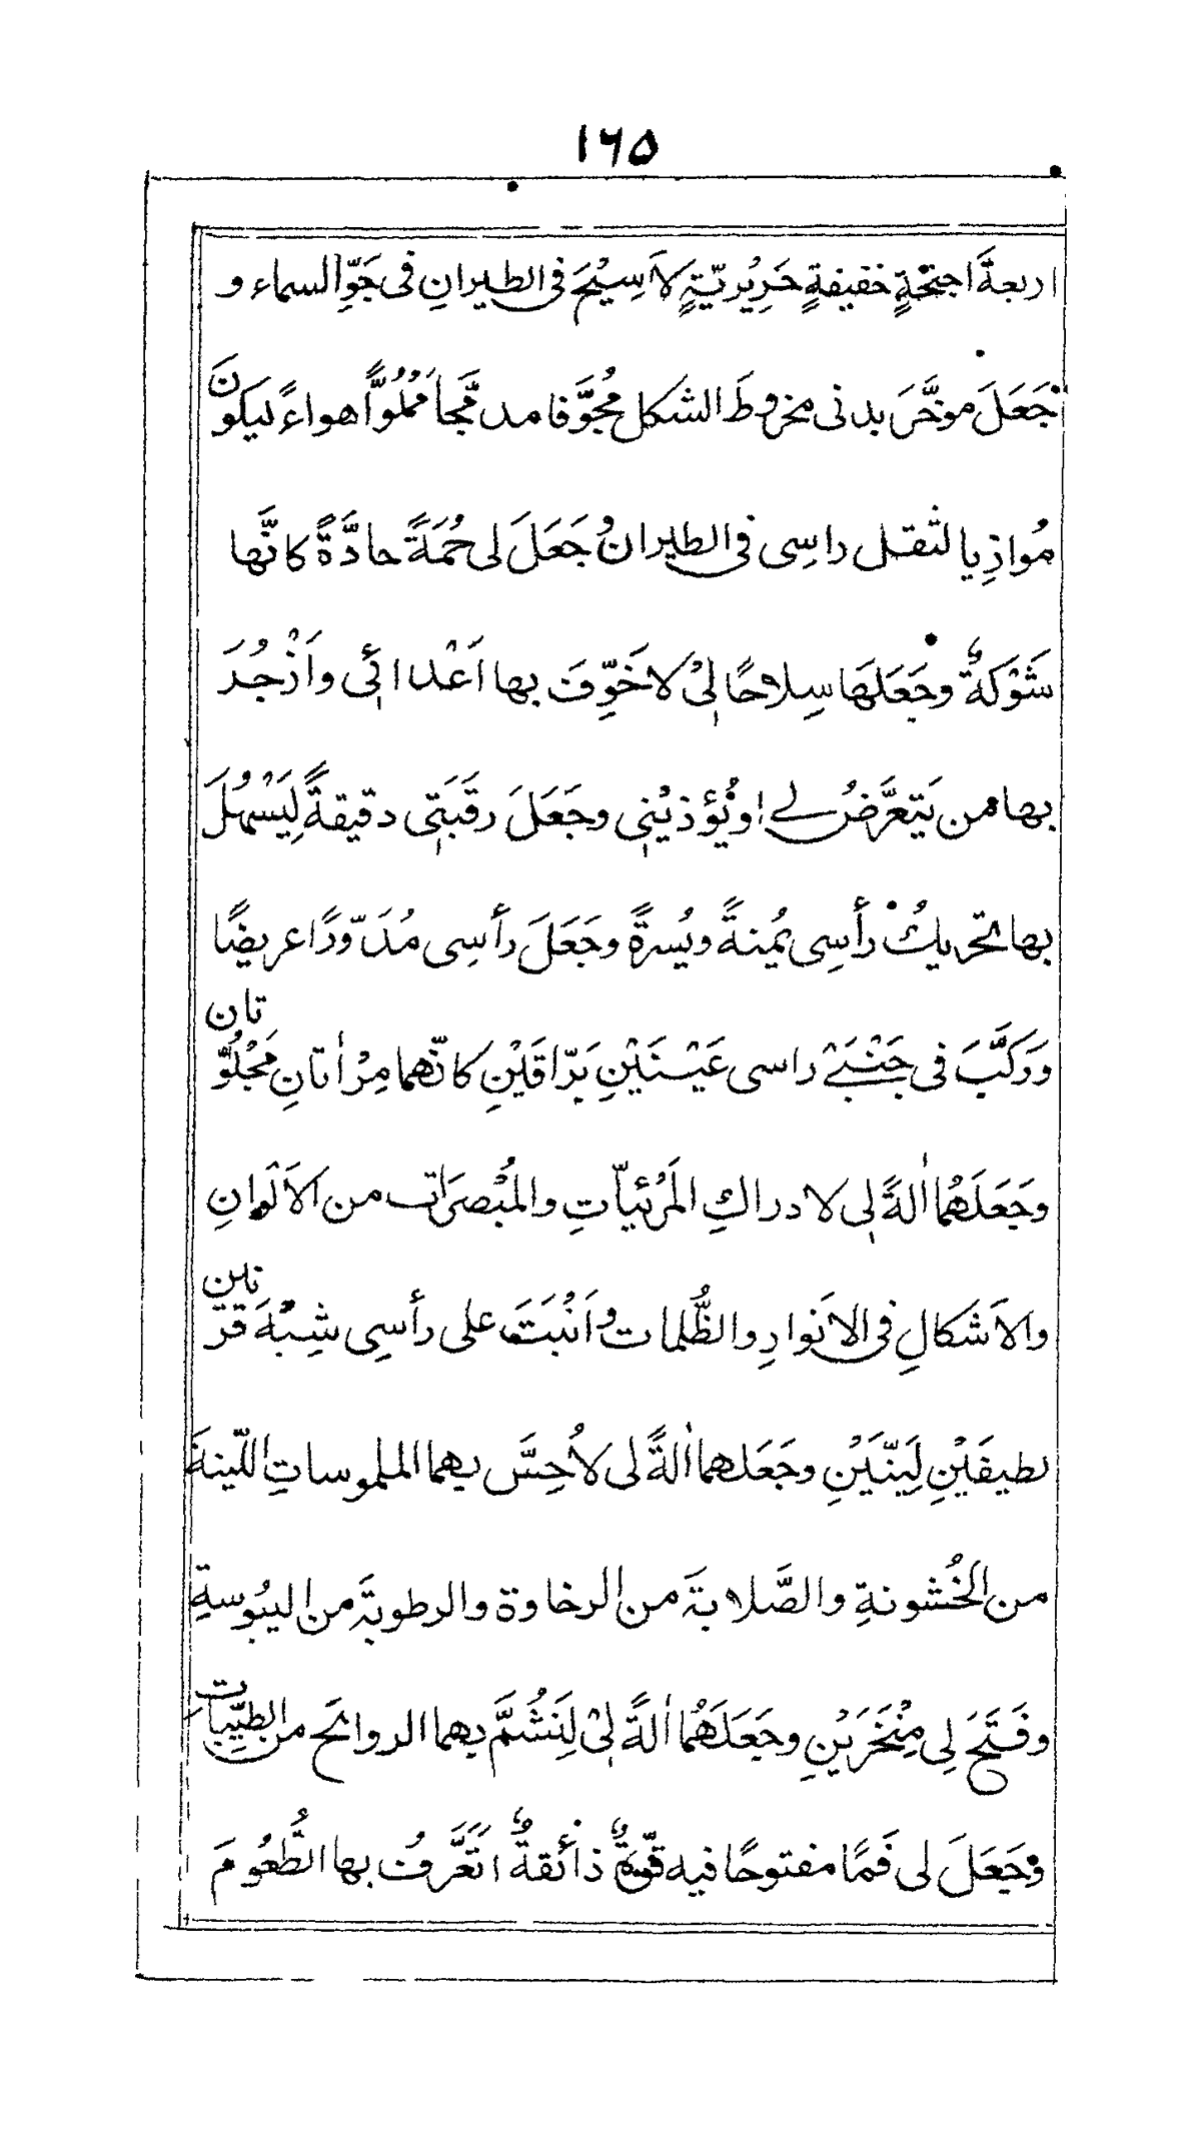 ١٦٥
اربعةَ اجنحةٍ خفيفةٍ حَرِيْرِيّةٍ لاَسِيْحَ فى الطيرانِ فى جَوِّ السماء و
جَعَلَ موخَّرَ بدنى مخروطَ الشكل مُجوَّفا مدمَّجاً مَمْلُوًّا هواءً ليكونَ
مُوازِيا لثقل راسِى فى الطيران وجَعَلَ لى حُمَةً حادَّةً كانَّها
شَوْكَةٌ وجَعَلَهَا سِلاحًا لِىْ لاخَوِّفَ بها اَعْداائِى واَزْجُرَ
بها من يَتعرَّضُ لے او يُؤذيْنِى وجَعَلَ رقَبَتِى دقيقةً لِيَسْهُلَ
بها تحريكُ رأسِى يُمنةً ويُسرةً وجَعَلَ رأسِى مُدَوَّرًا عريضًا
وَرَكَّبَ فى جَنْبَےْ راسى عَيْنَيْنِ بَرّاقَيْنِ كانّهما مِرْاٰتانِ مَجْلُوَّتان
وجَعَلَهُما اٰلةً لِى لادراكِ المَرْئيّاتِ والمُبْصَراتِ من الاَلْوانِ
والاَشكالِ فى الانوارِ والظُّلمات واَنْبَتَ على رأسِى شِبْهَ قرنين
لطيفَيْنِ لَيِّنَيْنِ وجَعَلهما اٰلةً لى لاُحِسَّ بهما الملموساتِ اللّينةَ
من الخُشونةِ والصَّلابةَ من الرخاوة والرطوبةَ من اليبُوسةِ
وفَتَحَ لِى مِنْخَرَيْنِ وجَعَلَهُما اٰلةً لِىْ لِنَشُمَّ بهما الروائح من الطيّبات
وجَعَلَ لى فَمًا مفتوحًا فيه قوّةٌ ذائقةٌ اتَعَرَّفُ بها الطُّعُومَ